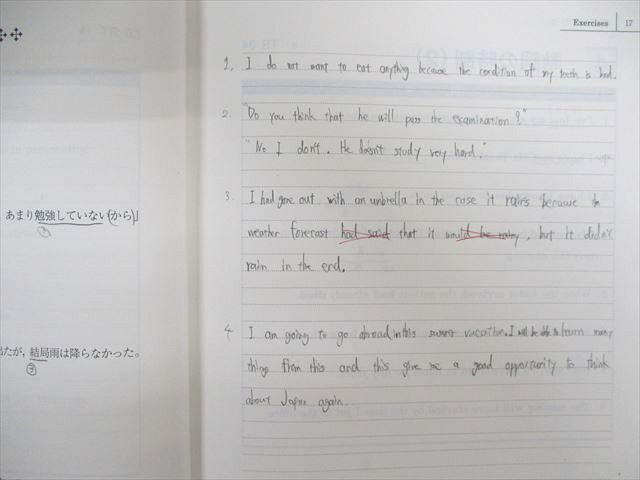 Exercises 17
1. I do not want to eat anything because the condition of my teeth is bad.
2. "Do you think that he will pass the examination?"
"No I don't. He doesn't study very hard."
3. I had gone out with an umbrella in the case it rains because
weather forecast had said that it would be rainy, but it didn't
rain in the end.
4. I am going to go abroad in this summer vacation. I will be able to learn many
things from this and this give me a good opportunity to think
about Japan again.
あまり勉強していない(から)」
たが，結局雨は降らなかった。